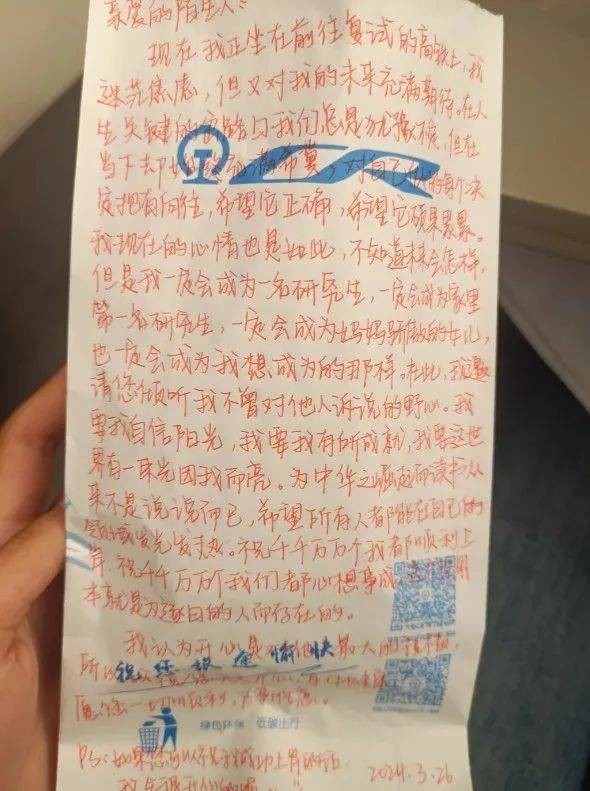 亲爱的陌生人:
现在我正坐在前往复试的高铁上,我
迷茫焦虑,但又对我的未来充满期待。在人
生关键的分路口我们总是犹豫不决,但在
当下却满希冀,对自己的每个决
定抱有向往,希望它正确,希望它硕果累累。
我现在的心情也是如此,不知道未来会怎样,
但是我一定会成为一名研究生,一定会成为家里
第一名研究生,一定会成为妈妈骄傲的女儿,
也一定会成为我想成为的那样。在此,我
请您倾听我不曾对他人诉说的野心。我
要我自信阳光,我要我有所成就,我要这世
界有一束光因我而亮。为中华之崛起而读书从
来不是说说而已,希望所有人都能在自己的
领域发光发热。祝千千万万个我都顺利上
岸,祝千千万万个我们都心想事成。
本就是为逐日的人而存在的。
我认为开心是最大的
所以
祝您旅途愉快
愿您一切顺利,
绿色环保 低碳出行
Ps:如果您可以祝我成功上岸的话,
我会很开心的
2024.3.26